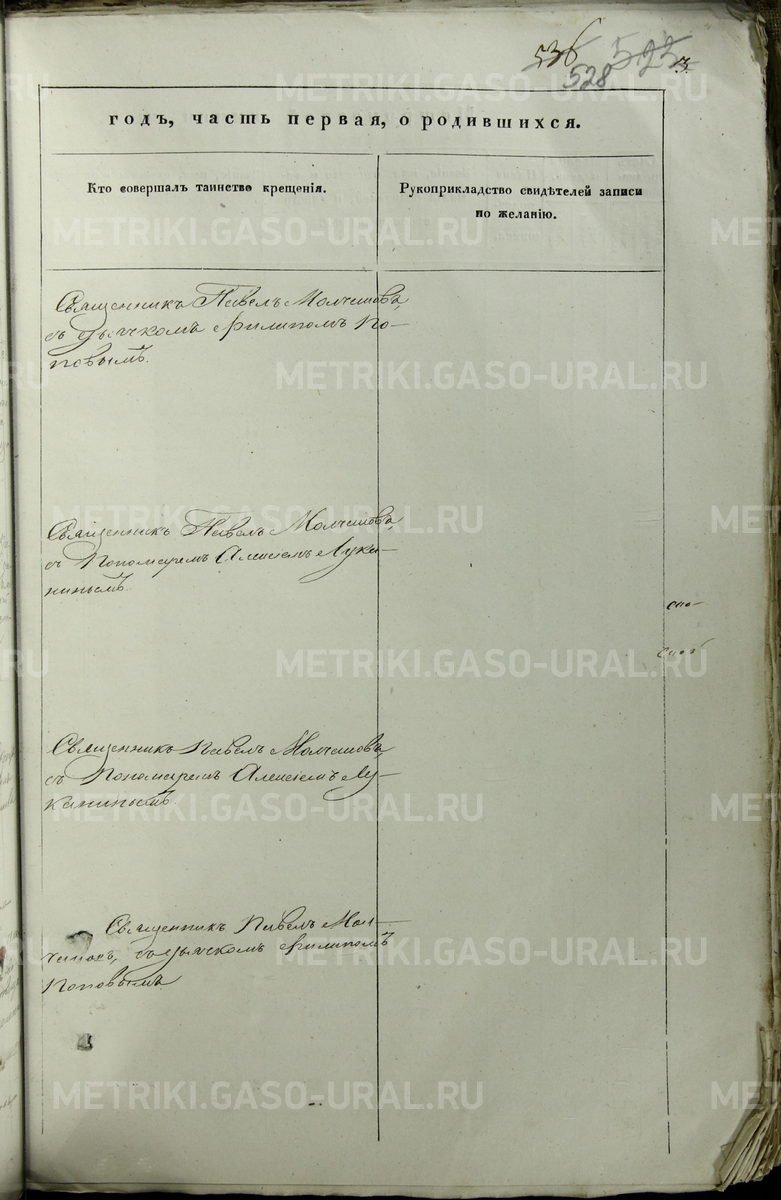 536 523 3.
528
годъ, часть первая, о родившихся.
Кто совершалъ таинство крещенія.
Рукоприкладство свидѣтелей записи
по желанію.
Священникъ Павелъ Молчановъ,
съ дьячкомъ Филипомъ По-
повымъ.
Священникъ Павелъ Молчановъ,
съ Пономаремъ Алексіемъ Лука-
нинымъ.
Священникъ Павелъ Молчановъ,
съ Пономаремъ Алексіемъ Лу-
канинымъ.
Священникъ Павелъ Мол-
чановъ, съ дьячкомъ Филипомъ
Поповымъ.
METRIKI.GASO-URAL.RU